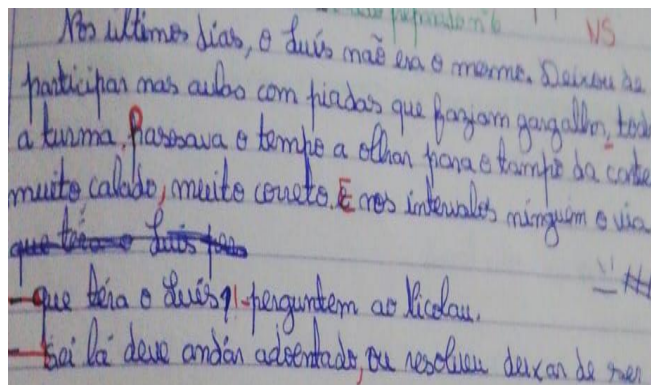 preparado nº 6 NS
Nos ultimos dias, o Luís não era o mesmo. Deixou de
participar nas aulas com piadas que faziam gargalhar, tod
a turma. Passava o tempo a olhar para o tampo da carte
muito calado, muito correto. E nos intervalos ninguém o via
que terá o Luís
-que têra o Luís?-perguntem ao Nicolau.
-Sei lá deve andar adoentado, ou resolveu deixar de ser